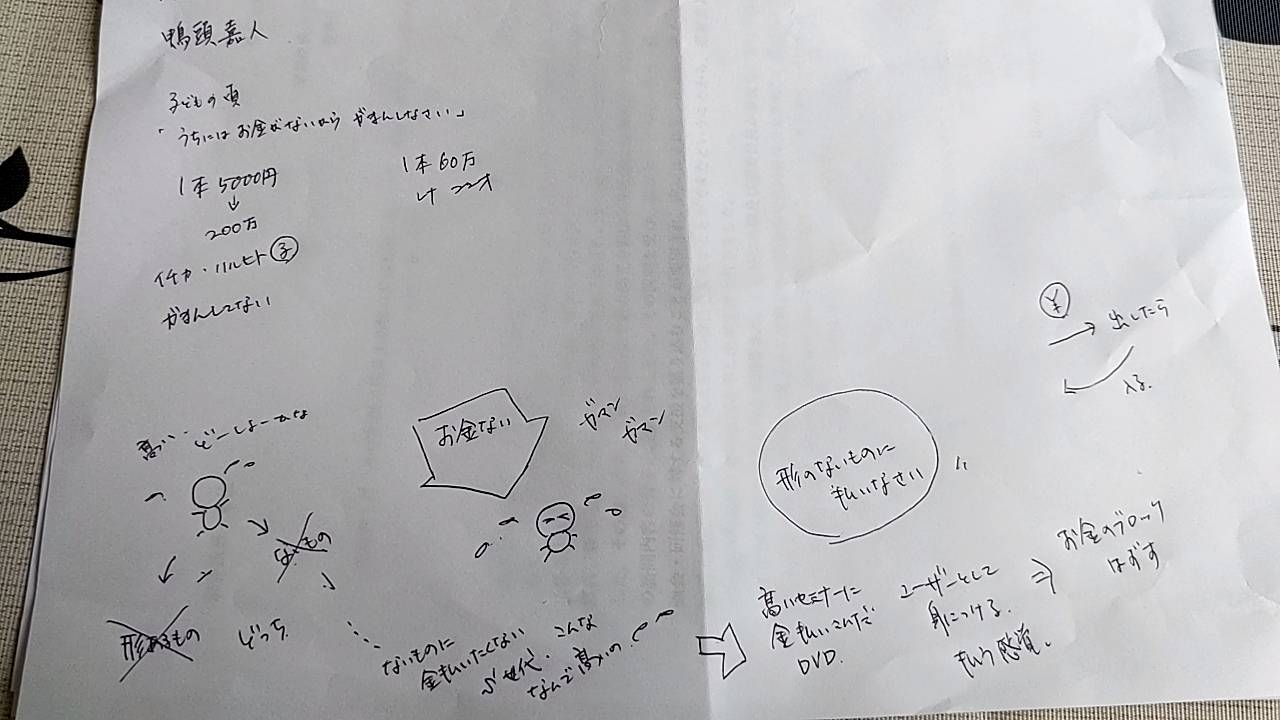 鴨頭嘉人
子どもの頃
「うちにはお金がないから がまんしなさい」
1本 5000円
↓
200万
1本 60万
イチカ・ハルヒト 子
がまんしてない
高い… どーしよーかな
ないもの
形あるもの
どっち
お金ない
ガマン
ガマン
ないものに
金払いたくない
世代 こんな
なんで高いの
¥
→ 出したら
入る.
形のないものに
払いなさい
高いセミナーに
金払いこんだ
DVD.
ユーザーとして
身につける.
払う感覚.
⇒ お金のブロック
はずす